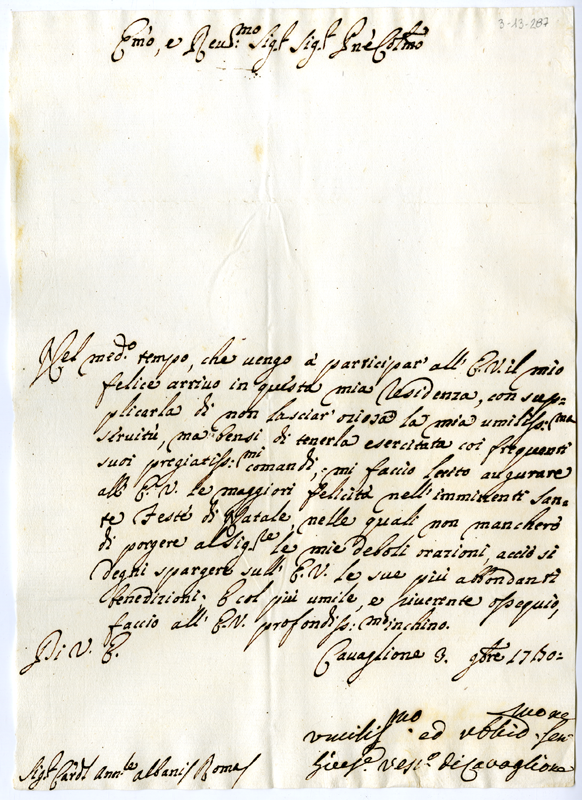 3-13-287
Emo, e Reu:mo Sigr Sigr Pne Colmo
Nel med:o tempo, che uengo à participar' all' E.V. il mio
felice arriuo in questa mia Residenza, con sup=
plicarla di non lasciar' oziosa la mia umiliss:ma
seruitù, ma bensi di tenerla esercitata coi frequenti
suoi pregiatiss:mi comandi; mi faccio lecito augurare
all' E. V. le maggiori felicità nell' imminenti San=
te Feste di Natale, nelle quali non mancherò
di porgere al Sigre le mie deboli orazioni, acciò si
degni spargere sull' E.V. le sue più abbondanti
benedizioni. E col più umile, e riuerente ossequio,
faccio all' E.V. profondiss:mo inchino.
Di V. E.
Cauaglione 3. 9bre 1730=
umilismo ed obbid. seru
Vesco. di Cavaglione
Sigr Cardl Annle Albani Roma